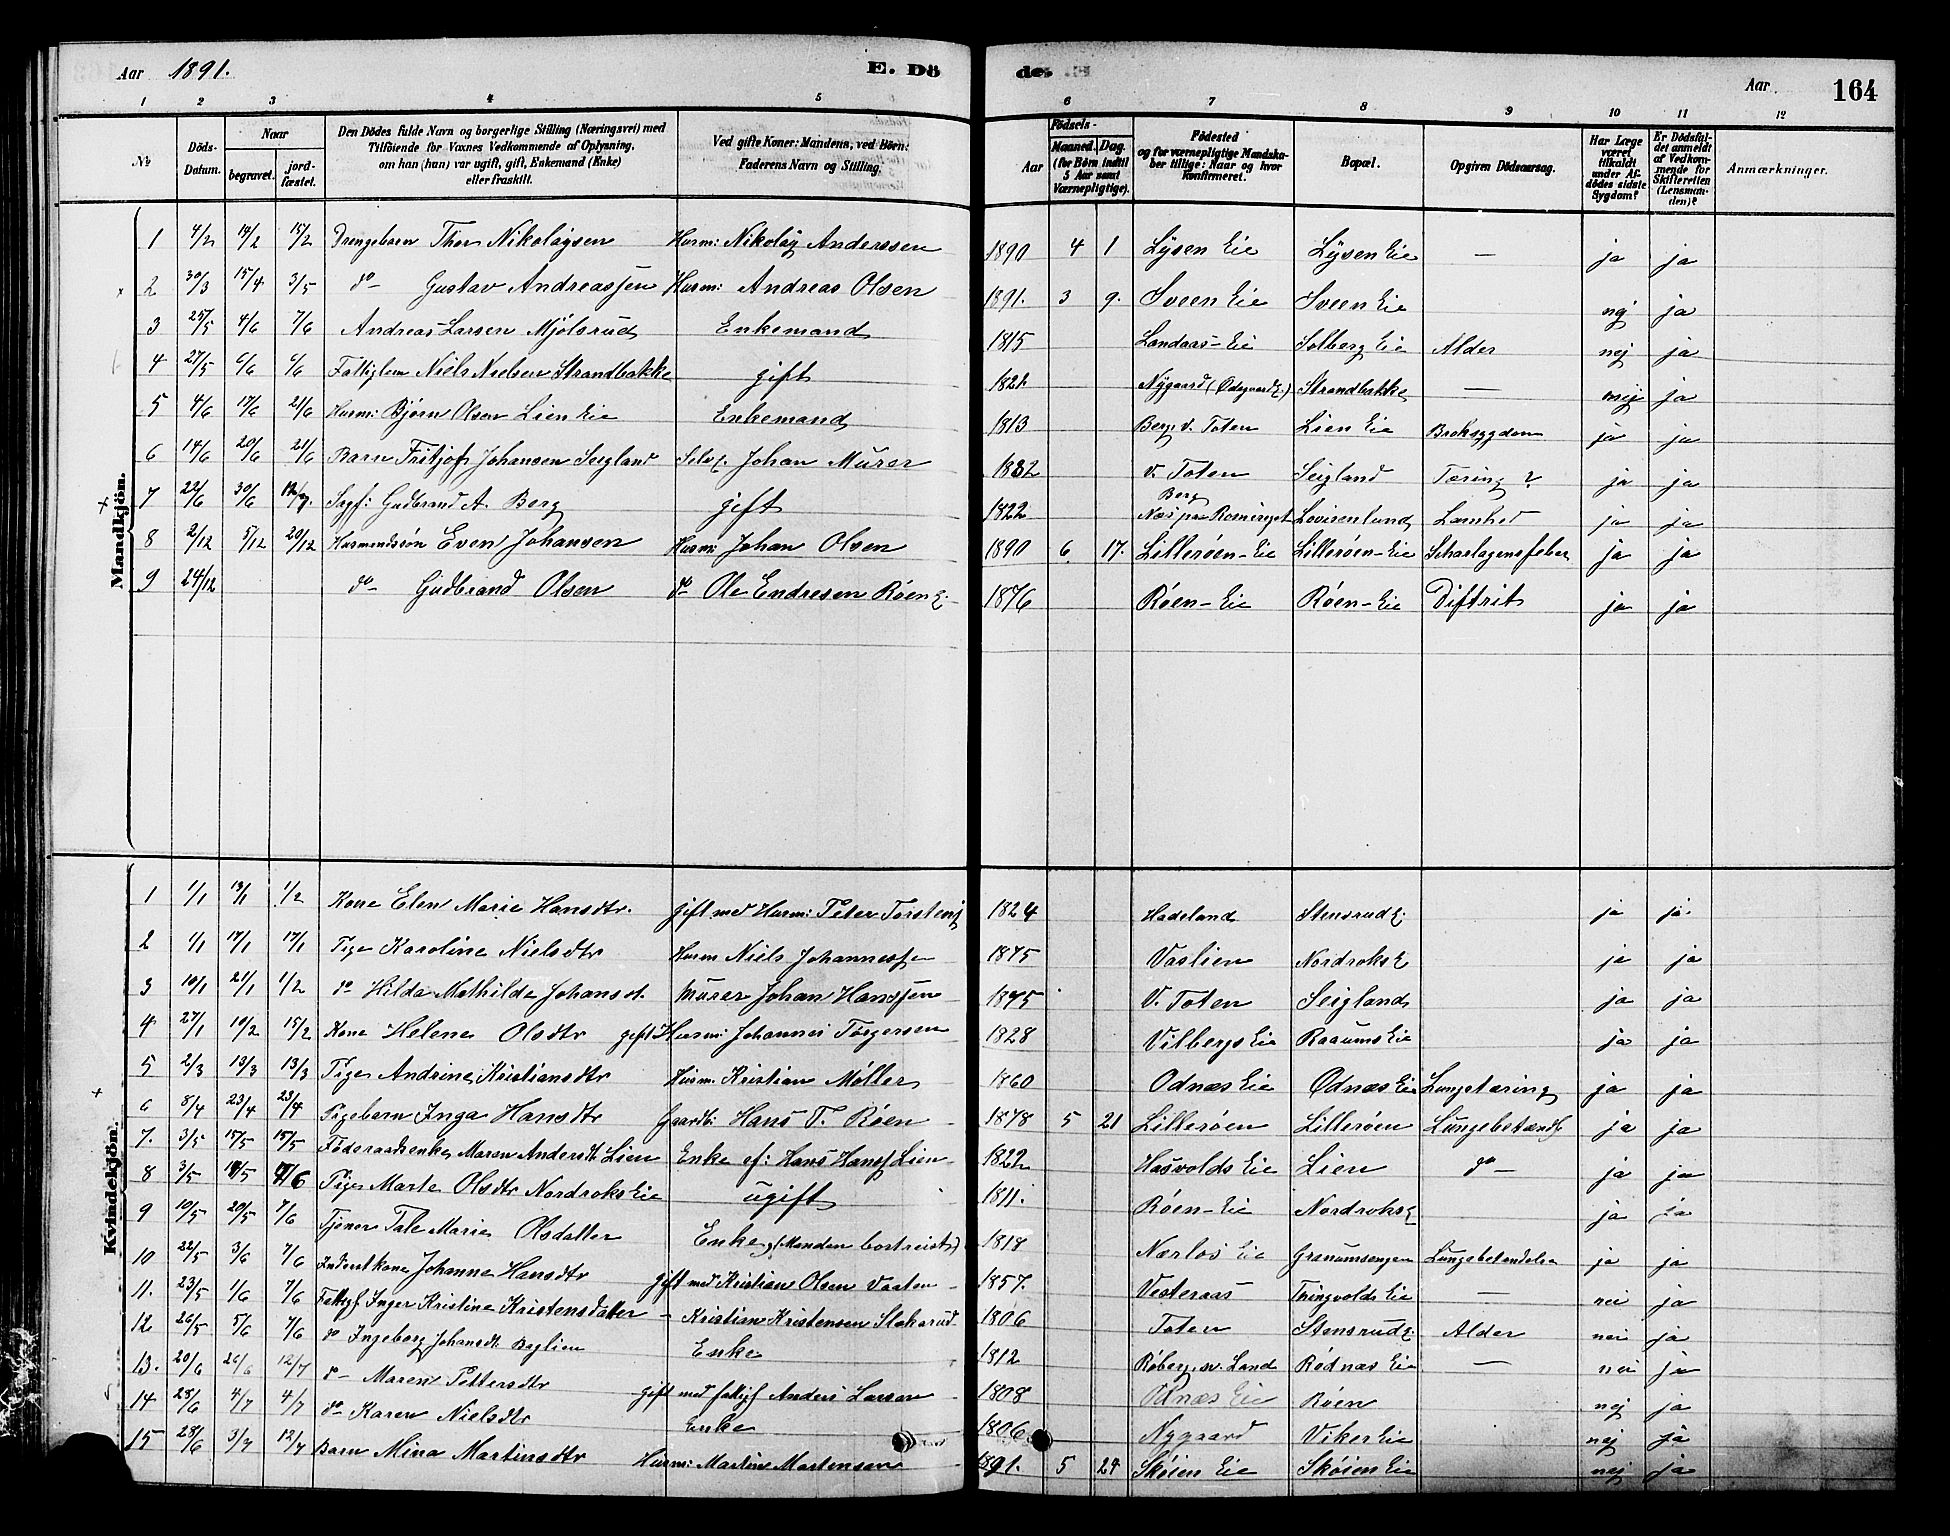 Aar 1891. E. Dö
de. Aar 164
1 2 3 4 5 6 7 8 9 10 11 12
No
Döds-Datum.
Naar begravet. jord-fæstet.
Den Dödes fulde Navn og borgerlige Stilling (Næringsvei) med Tilföiende for Voxnes Vedkommende af Oplysning, om han (hun) var ugift, gift, Enkemand (Enke) eller fraskilt.
Ved gifte Koner: Mandens, ved Börn: Faderens Navn og Stilling.
Födsels-
Aar Maaned. Dag. (for Börn indtil 5 Aar samt Værnepligtige).
Födested og for værnepligtige Mandskaber tillige: Naar og hvor Konfirmeret.
Bopæl.
Opgiven Dödsaarsag.
Har Læge været tilkaldt under Afdödes sidste Sygdom?
Er Dödsfaldet anmeldt af Vedkommende for Skifteretten (Lensmanden)?
Anmærkninger.
Mandkjön.
1 4/2 14/2 15/2 Drengebarn Thor Nikolaysen Husm: Nikolay Anderssen 1890 4 1 Lysen Eie Lysen Eie — ja ja
2 30/3 15/4 3/5 do Gustav Andreassen Husm: Andreas Olsen 1891. 3 9. Sveen Eie Sveen Eie nej ja
3 25/5 4/6 7/6 Andreas Larsen Mjølsrud Enkemand 1815 Landaas-Eie Solberg Eie Alder nej ja
4 27/5 6/6 6/6 Fattiglem Niels Nielsen Strandbakke gift 1821 Nygaard (Ødegaard E.) Strandbakke — nej ja
5 4/6 17/6 21/6 Husm: Bjørn Olsen Lien Eie Enkemand 1813 Berg v. Toten Lien Eie Broksygdom ja ja
6 14/6 20/6 21/6 Barn Fritjof Johansen Seigland Selv f. Johan Murer 1882 V. Toten Seigland Tæring ? ja ja
7 22/6 30/6 12/7. Sagf: Gudbrand A. Berg gift 1822 Berg Næs paa Romeriget Lovisenlund Lamhed ja ja
8 2/12 5/12 20/12 Husmandssøn Even Johansen Husm: Johan Olsen 1890 6 17. Lillerøen-Eie Lillerøen-Eie Scharlagensfeber ja ja
9 24/12 do Gudbrand Olsen do Ole Endresen Røen E. 1876 Røen-Eie Røen-Eie Diftrit ja ja
Kvindekjön.
1 1/1 13/1 1/2 Kone Elen Marie Hansdtr. gift med Husm: Peter Torstens 1824 Hadeland Stensrud E. ja ja
2 1/1 17/1 17/1 Pige Karoline Nielsdtr Husm Niels Johanness 1875 Vaslien Nordroks E ja ja
3 10/1 21/1 1/2 do Hilda Mathilde Johansdt. Murer Johan Hanssen 1875 V. Toten Seigland ja ja
4 27/1 10/2 15/2 Kone Helene Olsdtr gift Husm: Johannes Torgersen 1828 Vilbergs Eie Raaums Eie ja ja
5 2/3 13/3 13/3 Pige Andrine Kristiansdtr Husm. Kristian Møller 1860 Odnæs Eie Odnæs Eie Lungetæring ja ja
6 8/4 23/4 23/4 Pigebarn Inga Hansdtr Gaardb: Hans T. Røen 1878 5 21 Lillerøen Lillerøen Lungebetændf ja ja
7. 3/5 15/5 15/5 Føderaadsenke Maren Andersdt Lien Enke ef: Hans Hanss Lien 1822 Hasvolds Eie Lien do ja ja
8 3/5 7/6 Pige Marte Olsdtr Nordroks Eie ugift 1811. Røen-Eie Nordroks E ja ja
9 10/5 20/5 7/6 Tjener Tale Marie Olsdatter Enke, (Manden bortreist) 1818 Nærlos Eie Granumsengen Lungebetændelse ja ja
10 22/5 3/6 7/6 Inderstkone Johanne Hansdtr gift med Kristian Olsen Vasten 1857. Vesteraas Tingvolds Eie — nei ja
11. 23/5 1/6 7/6 Fattigf Inger Kristine Kristensdatter Kristian Kristensen Stokerud 1806 Toten Stensrud E. Alder nei ja
12 26/5 5/6 7/6 do Ingeborg Johansdt. Baglien Enke 1812 Røberg N. Land Rødnæs Eie — nei ja
13. 20/6 26/6 12/7 do Maren Pettersdtr gift med fattigf Anders Larsen 1808 Odnæs Eie Røen nej ja
14 28/6 4/7 4/7 do Karen Nielsdtr Enke 1806 Nygaard Viker Eie nej ja
15 28/6 3/7 12/7 Barn Mina Martinsdtr Husm: Martin Martensen 1891. 5 24 Skøien Eie Skøien Eie nej ja